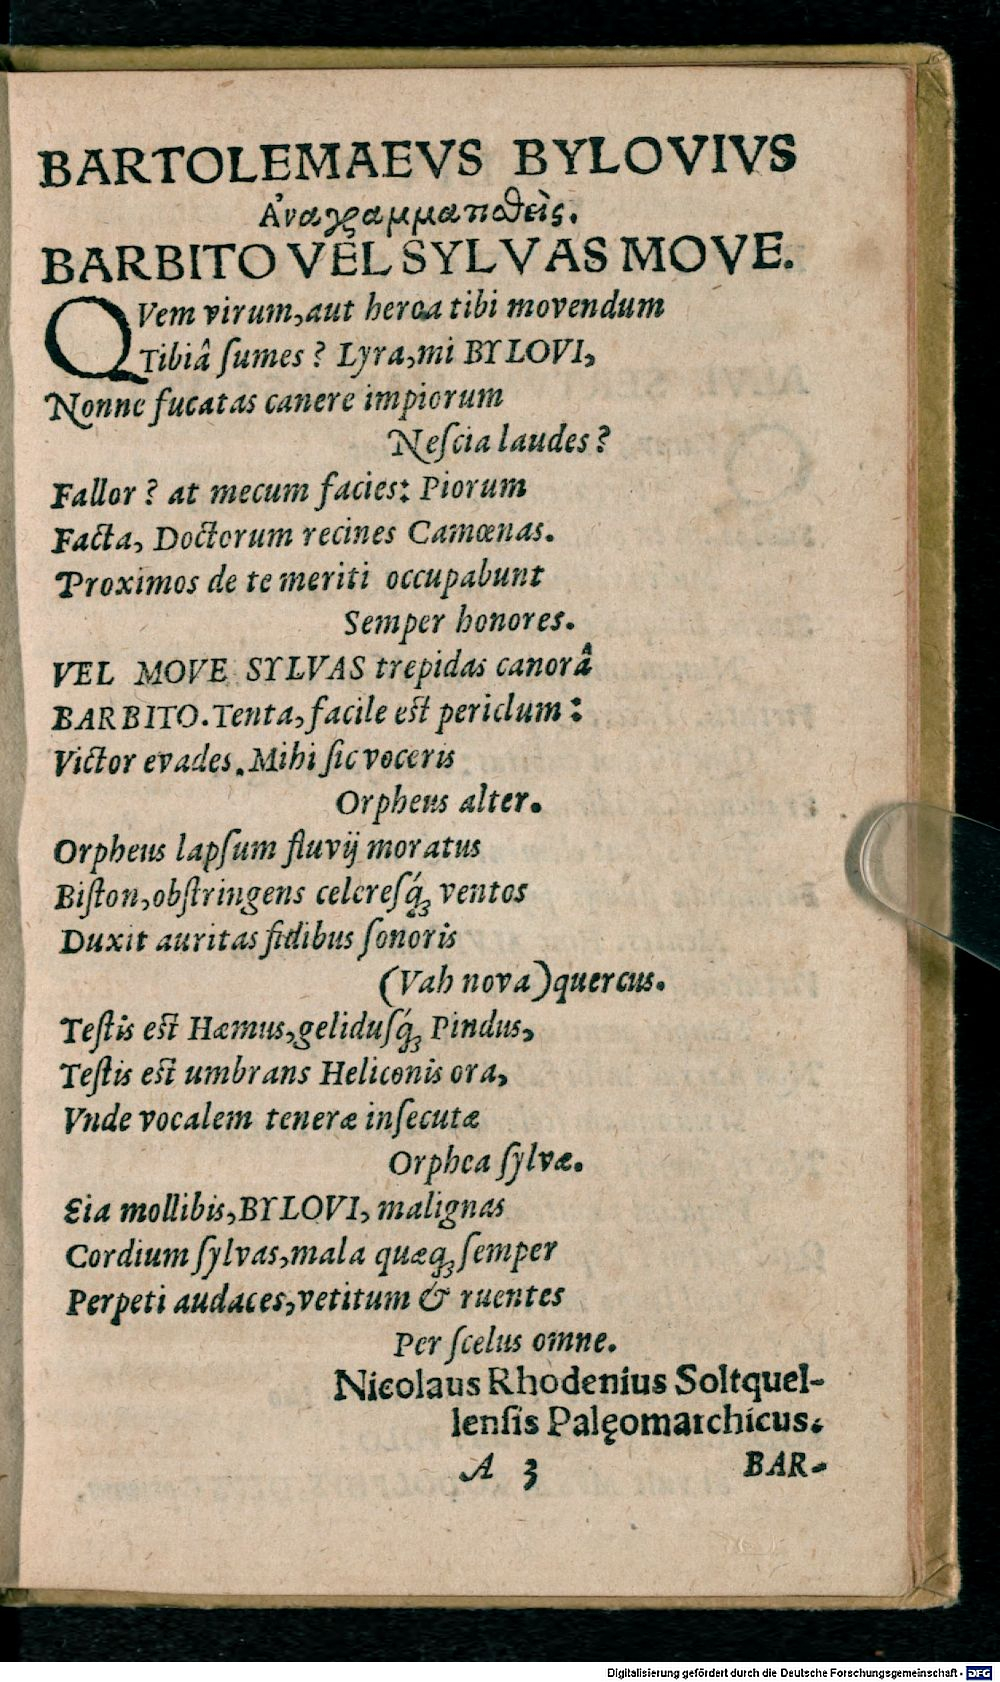 BARTOLEMAEVS BYLOVIVS
Ἀναγραμματισθεὶς.
BARBITO VEL SYLVAS MOVE.
QVem virum, aut heroa tibi movendum
Tibiâ ſumes? Lyra, mi BYLOVI,
Nonne fucatas canere impiorum
Neſcia laudes?
Fallor? at mecum facies: Piorum
Facta, Doctorum recines Camœnas.
Proximos de te meriti occupabunt
Semper honores.
VEL MOVE SYLVAS trepidas canorâ
BARBITO. Tenta, facile est periclum:
Victor evades. Mihi ſic voceris
Orpheus alter.
Orpheus lapſum fluvij moratus
Biſton, obſtringens celereſq́ꝫ ventos
Duxit auritas fidibus ſonoris
(Vah nova) quercus.
Teſtis est Hæmus, geliduſq́ꝫ Pindus,
Teſtis est umbrans Heliconis ora,
Vnde vocalem teneræ inſecutæ
Orphea ſylvæ.
Eia mollibis, BYLOVI, malignas
Cordium ſylvas, mala quæqꝫ ſemper
Perpeti audaces, vetitum & ruentes
Per ſcelus omne.
Nicolaus Rhodenius Soltquel-
lenſis Palęomarchicus.
A 3 BAR-
Digitalisierung gefördert durch die Deutsche Forschungsgemeinschaft - DFG